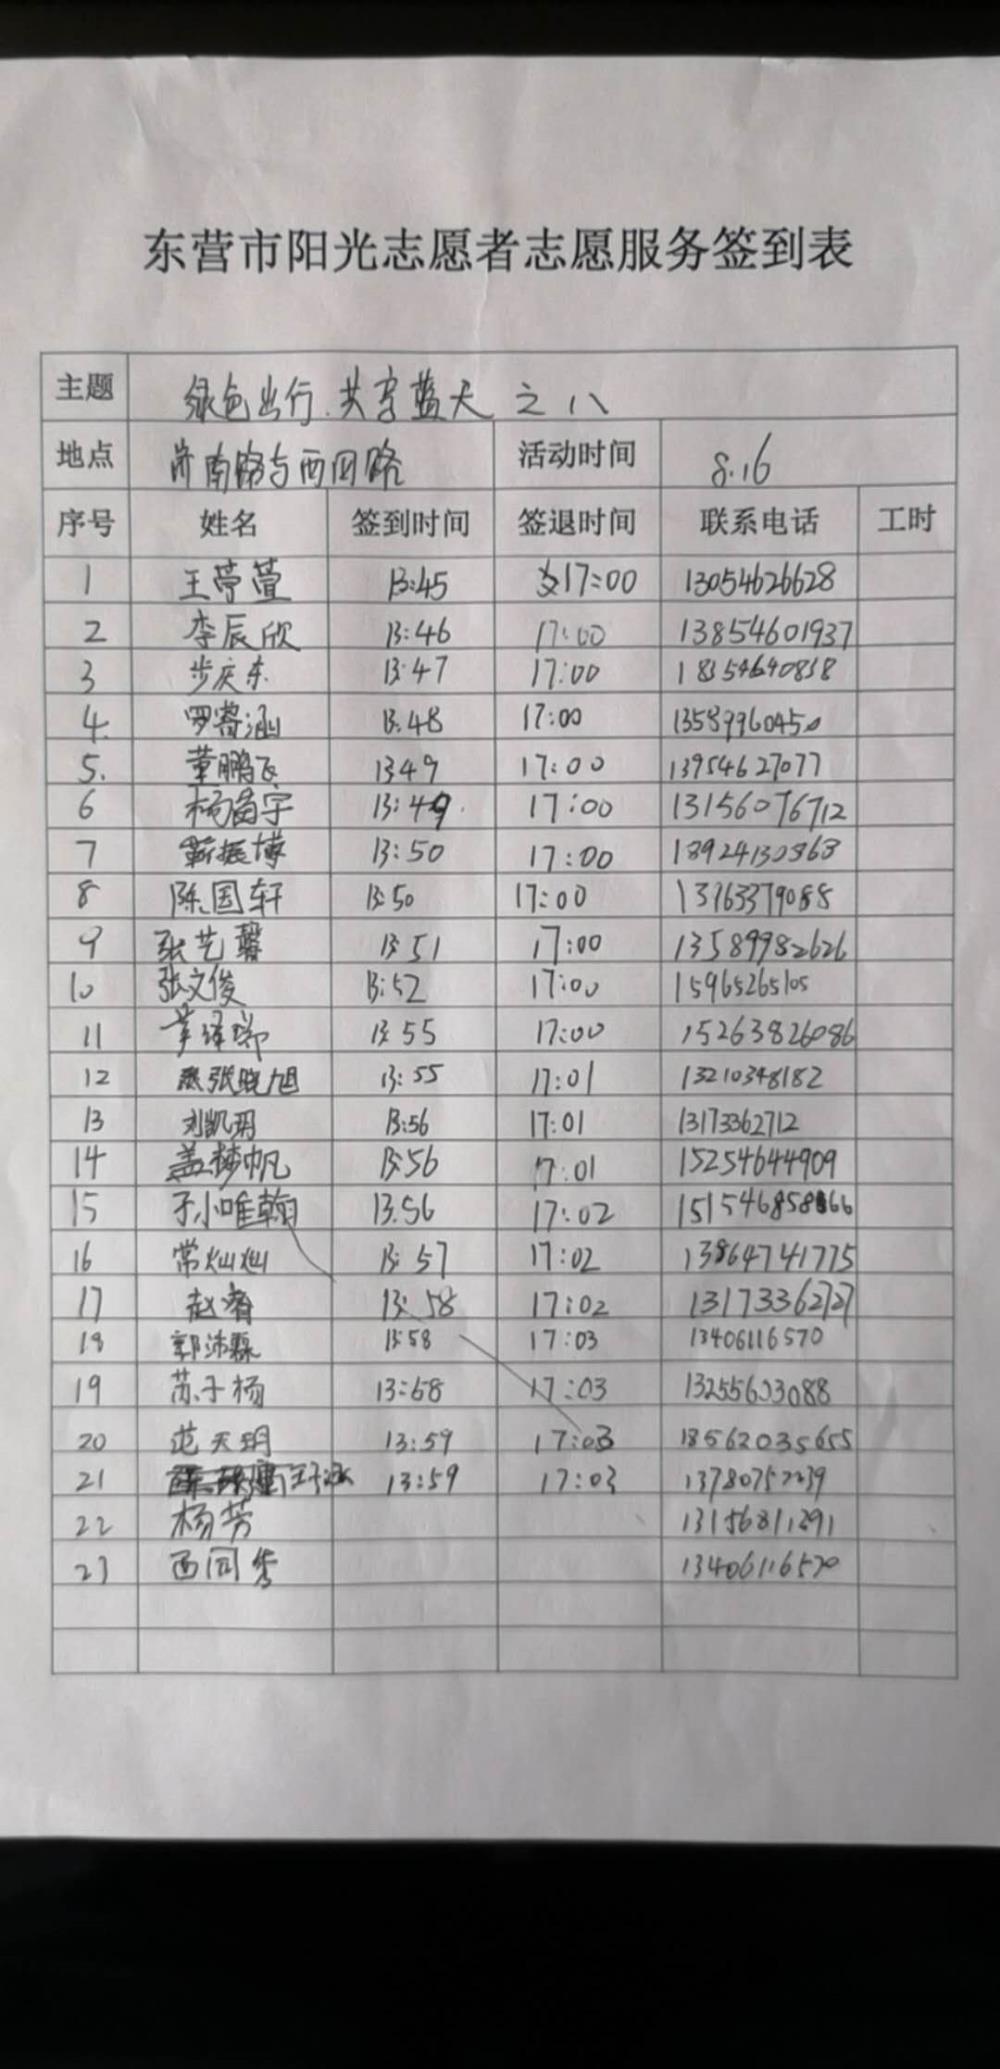 东营市阳光志愿者志愿服务签到表
主题 绿色出行.共享蓝天 之八
地点 济南路与西四路 活动时间 8.16
序号 姓名 签到时间 签退时间 联系电话 工时
1 王葶萱 13:45 17:00 13054626628
2 李辰欣 13:46 17:00 13854601937
3 步庆东 13:47 17:00 18354640838
4. 罗蓉涵 13:48 17:00 13589960450
5. 董鹏飞 13:49 17:00 13954627077
6 杨富宇 13:49 17:00 13156076712
7 靳振博 13:50 17:00 18924130868
8 陈国轩 13:50 17:00 13763379088
9 张艺馨 13:51 17:00 13589982626
10 张文俊 13:52 17:00 15965265105
11 13:55 17:00 15263826086
12 张晓旭 13:55 17:01 13210348182
13 刘凯玥 13:56 17:01 13173362712
14 盖梦帆 13:56 17:01 15254644909
15 唯翰 13:56 17:02
16 常灿灿 13:57 17:02 13864741775
17 赵 13:58 17:02 13173362727
18 郭沛霖 13:58 17:03 13406116570
19 苏子杨 13:58 17:03 13255603088
20 范天玥 13:59 17:03 18562035655
21 王子涵 13:59 17:03
22 杨芳 13156811291
23 西同秀 13406116570